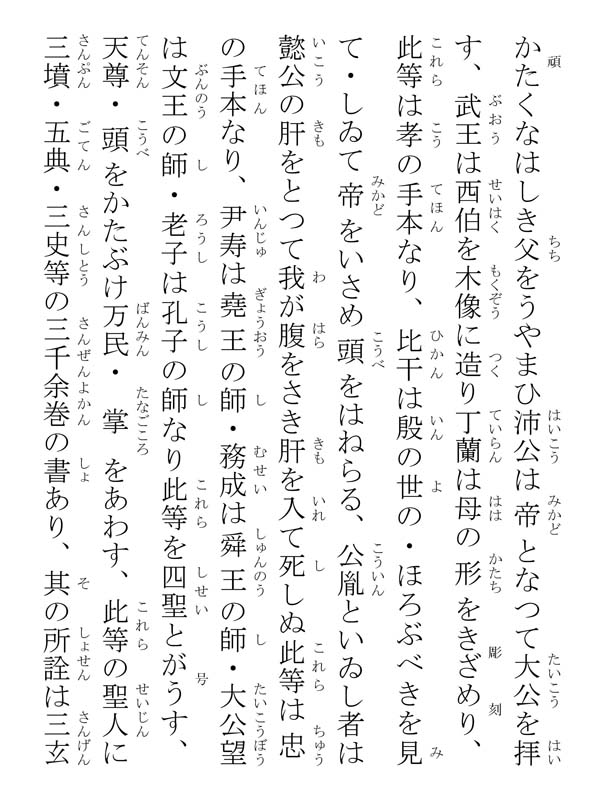 かたくなはしき父をうやまひ沛公は帝となつて大公を拝
す、武王は西伯を木像に造り丁蘭は母の形をきざめり、
此等は孝の手本なり、比干は殷の世の・ほろぶべきを見
て・しゐて帝をいさめ頭をはねらる、公胤といゐし者は
懿公の肝をとつて我が腹をさき肝を入て死しぬ此等は忠
の手本なり、尹寿は尭王の師・務成は舜王の師・大公望
は文王の師・老子は孔子の師なり此等を四聖とがうす、
天尊・頭をかたぶけ万民・掌をあわす、此等の聖人に
三墳・五典・三史等の三千余巻の書あり、其の所詮は三玄